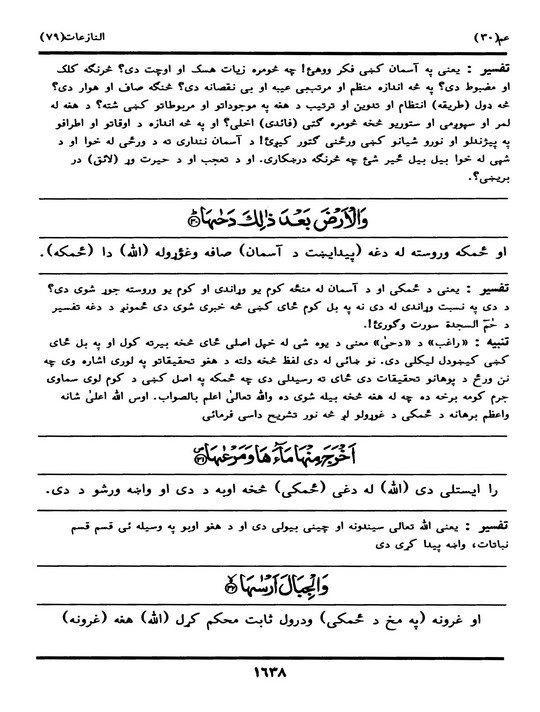 عم(٣٠) النازعات(٧٩)
تفسير : يعنى په آسمان كښى فكر ووهئ! چه څومره زيات هسک او اوچت دى؟ څرنگه كلک
او مضبوط دى؟ په څه اندازه منظم او مرتب‌بى عيبه او بى نقصانه دى؟ څنگه صاف او هوار دى؟
څه ډول (طريقه) انتظام او تدوين او ترتيب د هغه په موجوداتو او مربوطاتو كښى شته؟ د هغه له
لمر او سپوږمى او ستوريو څخه څومره گټى (فائدى) اخلى؟ او په څه اندازه د اوقاتو او اطرافو
په پيژندلو او نورو شيانو كښى ورځنى گټور كيږئ! د آسمان ننداری ته د ورځى له خوا او د
شپى له خوا بيل بيل ځير شئ چه څرنگه درښكارى. او د تعجب او د حيرت وړ (لائق) در
بريښى؟.
وَالْاَرْضَ بَعْدَ ذٰلِكَ دَحٰىهَا ﴿٣٠﴾
او ځمكه وروسته له دغه (پيدايښت د آسمان) صافه وغوړوله (الله) دا (ځمكه).
تفسير : يعنى د ځمكى او د آسمان له منځه كوم يو وړاندى او كوم يو وروسته جوړ شوى دى؟
د دى په نسبت وړاندى له دى نه په بل كوم ځاى كښى څه خبرى شوى دى ځمونږ د دغه تفسير
د حٰمٓ السجدة سورت وگورئ!.
تنبيه : «راغب» د «دحىٰ» معنى د يوه شى له خپل اصلى ځاى څخه بيرته كول او په بل ځاى
كښى كيښودل ليكلى دى. نو ښائى له دى لفظ څخه دلته د هغو تحقيقاتو په لورى اشاره وى چه
نن ورځ د پوهانو تحقيقات دى ځاى ته رسيدلى دى چه ځمكه په اصل كښى د كوم لوى سماوى
جرم كومه برخه ده چه له هغه څخه بيله شوى ده والله تعالىٰ اعلم بالصواب. اوس الله اعلىٰ شانه
واعظم برهانه د ځمكى د غوړولو لږ څه نور تشريح داسى فرمائى
اَخْرَجَ مِنْهَا مَآءَهَا وَمَرْعٰىهَا ﴿٣١﴾
را ايستلى دى (الله) له دغى (ځمكى) څخه اوبه د دى او واښه ورشو د دى.
تفسير : يعنى الله تعالى سيندونه او چينى بيولى دى او د هغو اوبو په وسيله ئى قسم قسم
نباتات، واښه پيدا كړى دى
وَالْجِبَالَ اَرْسٰىهَا ﴿٣٢﴾
او غرونه (په مخ د ځمكى) ودرول ثابت محكم كړل (الله) هغه (غرونه)
١٦٣٨